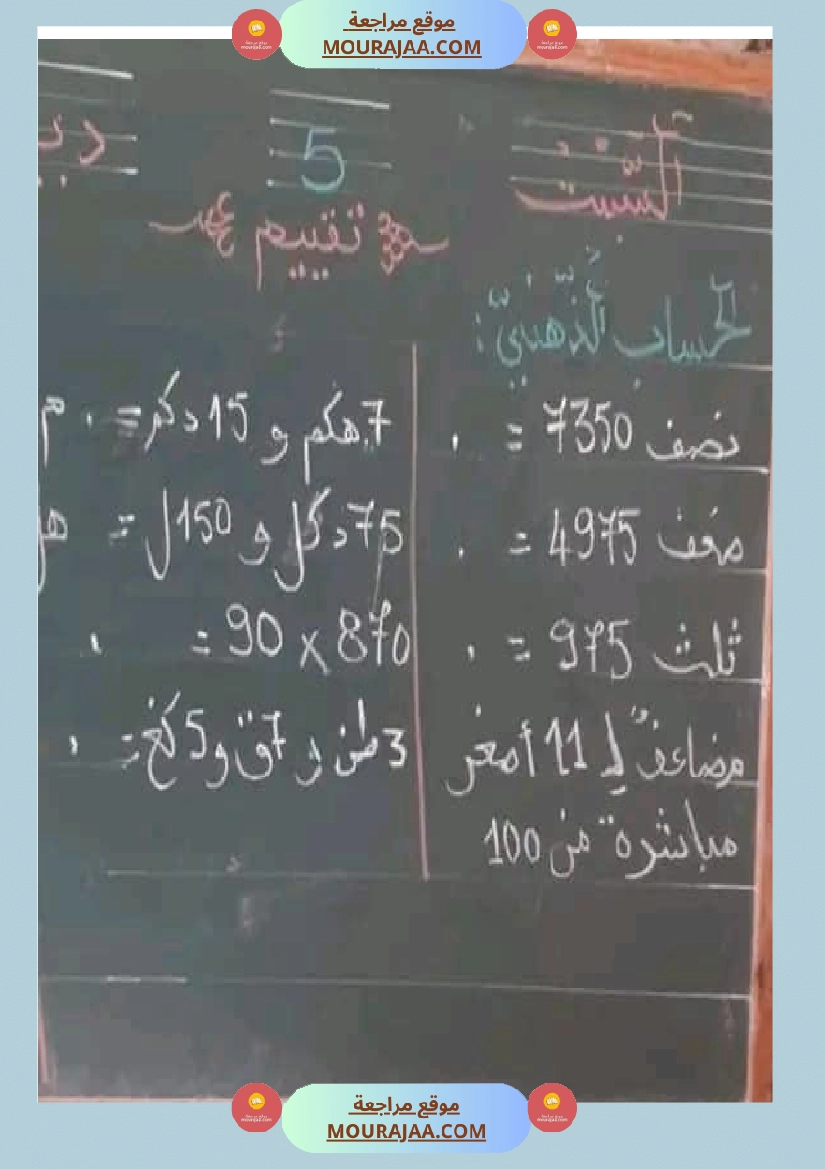 موقع مراجعة
MOURAJAA.COM
السبت 5
تقييم
الحساب الذّهنيّ:
نصف 7350 = .
ضعف 4975 = .
ثلث 975 = .
مضاعف لـ 11 أصغر
مباشرة من 100
7 هكم و 15 دكم = . م
75 دكل و 150 ل = هل
870 × 90 = .
3 طن و 7 ق و 5 كغ = .
موقع مراجعة
MOURAJAA.COM